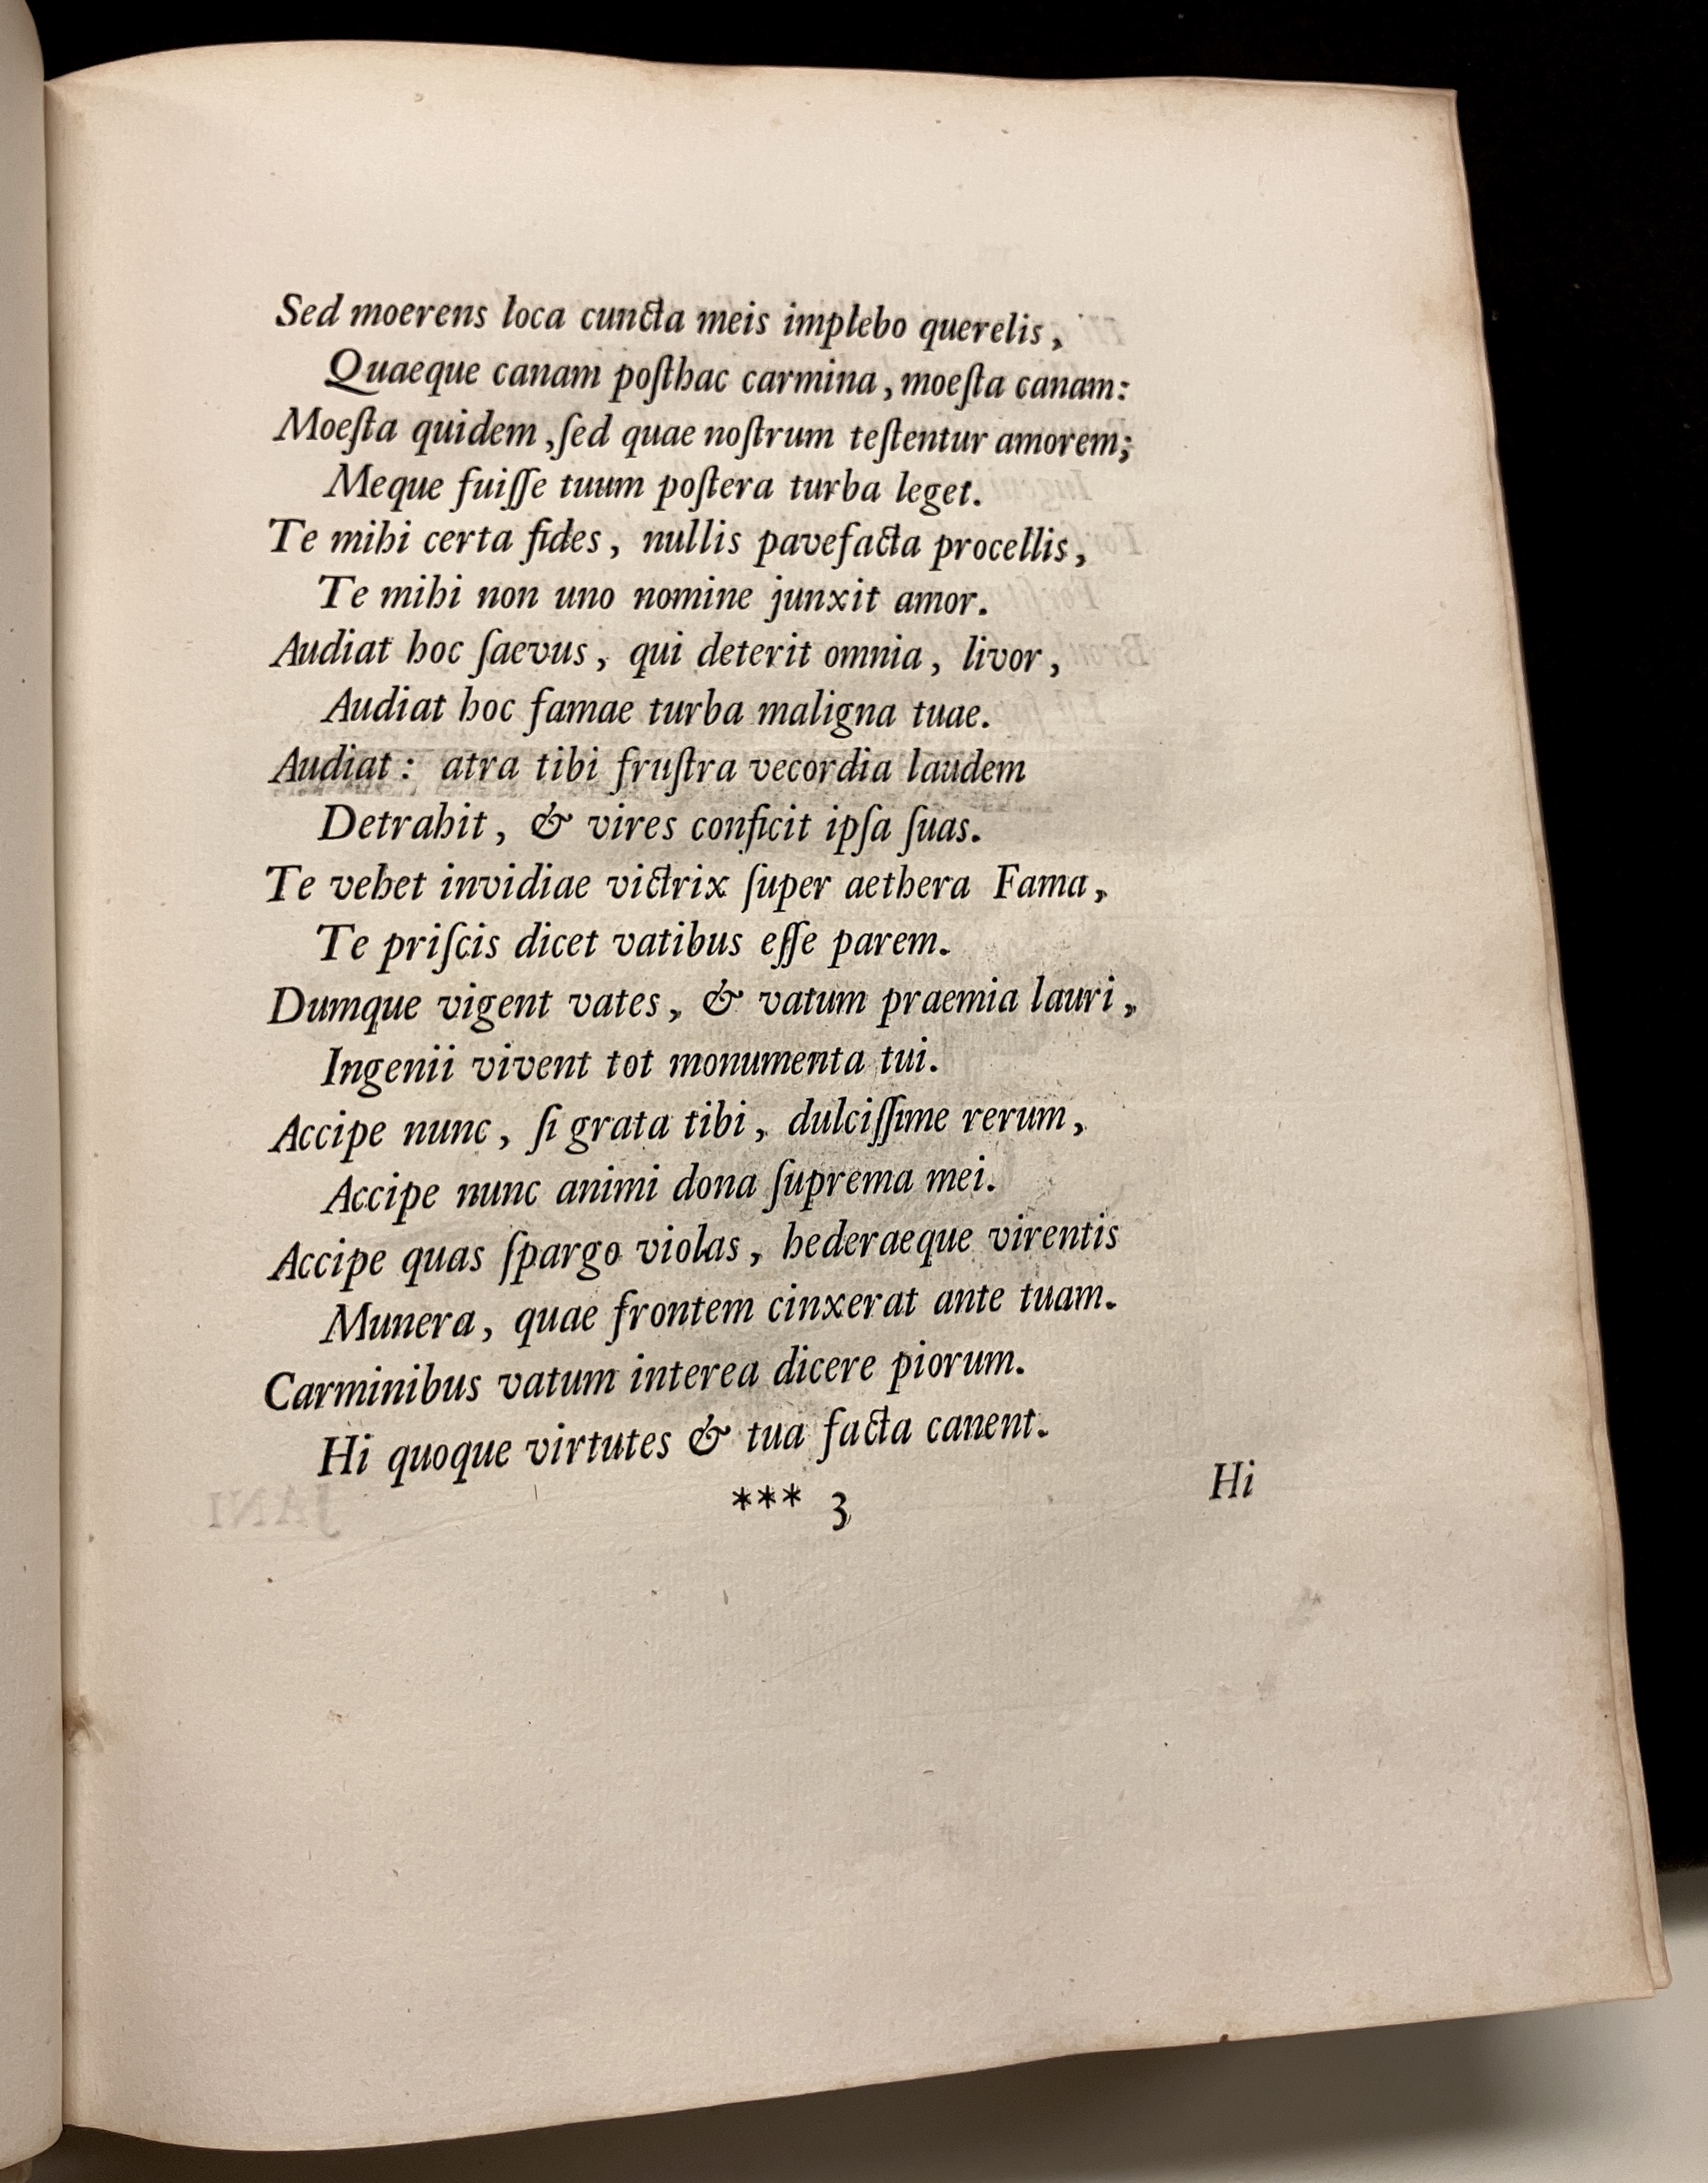 Sed moerens loca cuncta meis implebo querelis,
Quaeque canam poſthac carmina, moeſta canam:
Moeſta quidem, ſed quae noſtrum teſtentur amorem;
Meque fuiſſe tuum poſtera turba leget.
Te mihi certa fides, nullis pavefacta procellis,
Te mihi non uno nomine junxit amor.
Audiat hoc ſaevus, qui deterit omnia, livor,
Audiat hoc famae turba maligna tuae.
Audiat: atra tibi fruſtra vecordia laudem
Detrahit, & vires conficit ipſa ſuas.
Te vehet invidiae victrix ſuper aethera Fama,
Te priſcis dicet vatibus eſſe parem.
Dumque vigent vates, & vatum praemia lauri,
Ingenii vivent tot monumenta tui.
Accipe nunc, ſi grata tibi, dulciſſime rerum,
Accipe nunc animi dona ſuprema mei.
Accipe quas ſpargo violas, hederaeque virentis
Munera, quae frontem cinxerat ante tuam.
Carminibus vatum interea dicere piorum.
Hi quoque virtutes & tua facta canent.
*** 3
Hi